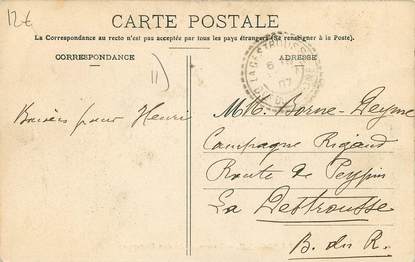 12€
CARTE POSTALE
La Correspondance au recto n'est pas acceptée par tous les pays étrangers (Se renseigner à la Poste).
CORRESPONDANCE
ADRESSE
11)
LA DESTROUSSE
07
Baisers pour Henri
Borne-Deyme
Campagne Rigaud
Route de Peypin
La Destrousse
B. du R.